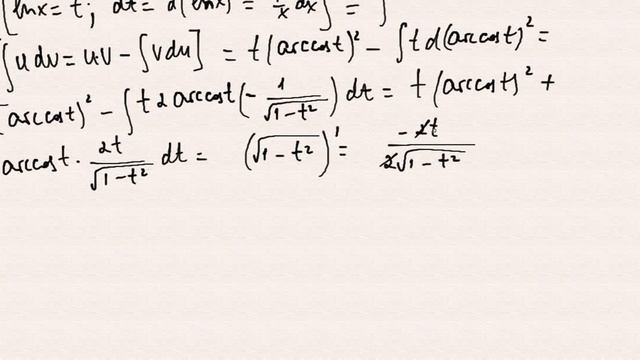 [lnx = t; dt = d(lnx) = 1/x dx] = ∫
∫u dv = uv - ∫v du] = t(arccost)² - ∫t d(arccost)² =
(arccost)² - ∫t 2 arccost(- 1/√(1-t²)) dt = t(arccost)² +
arccost · 2t/√(1-t²) dt = (√(1-t²))' = -2t/2√(1-t²)